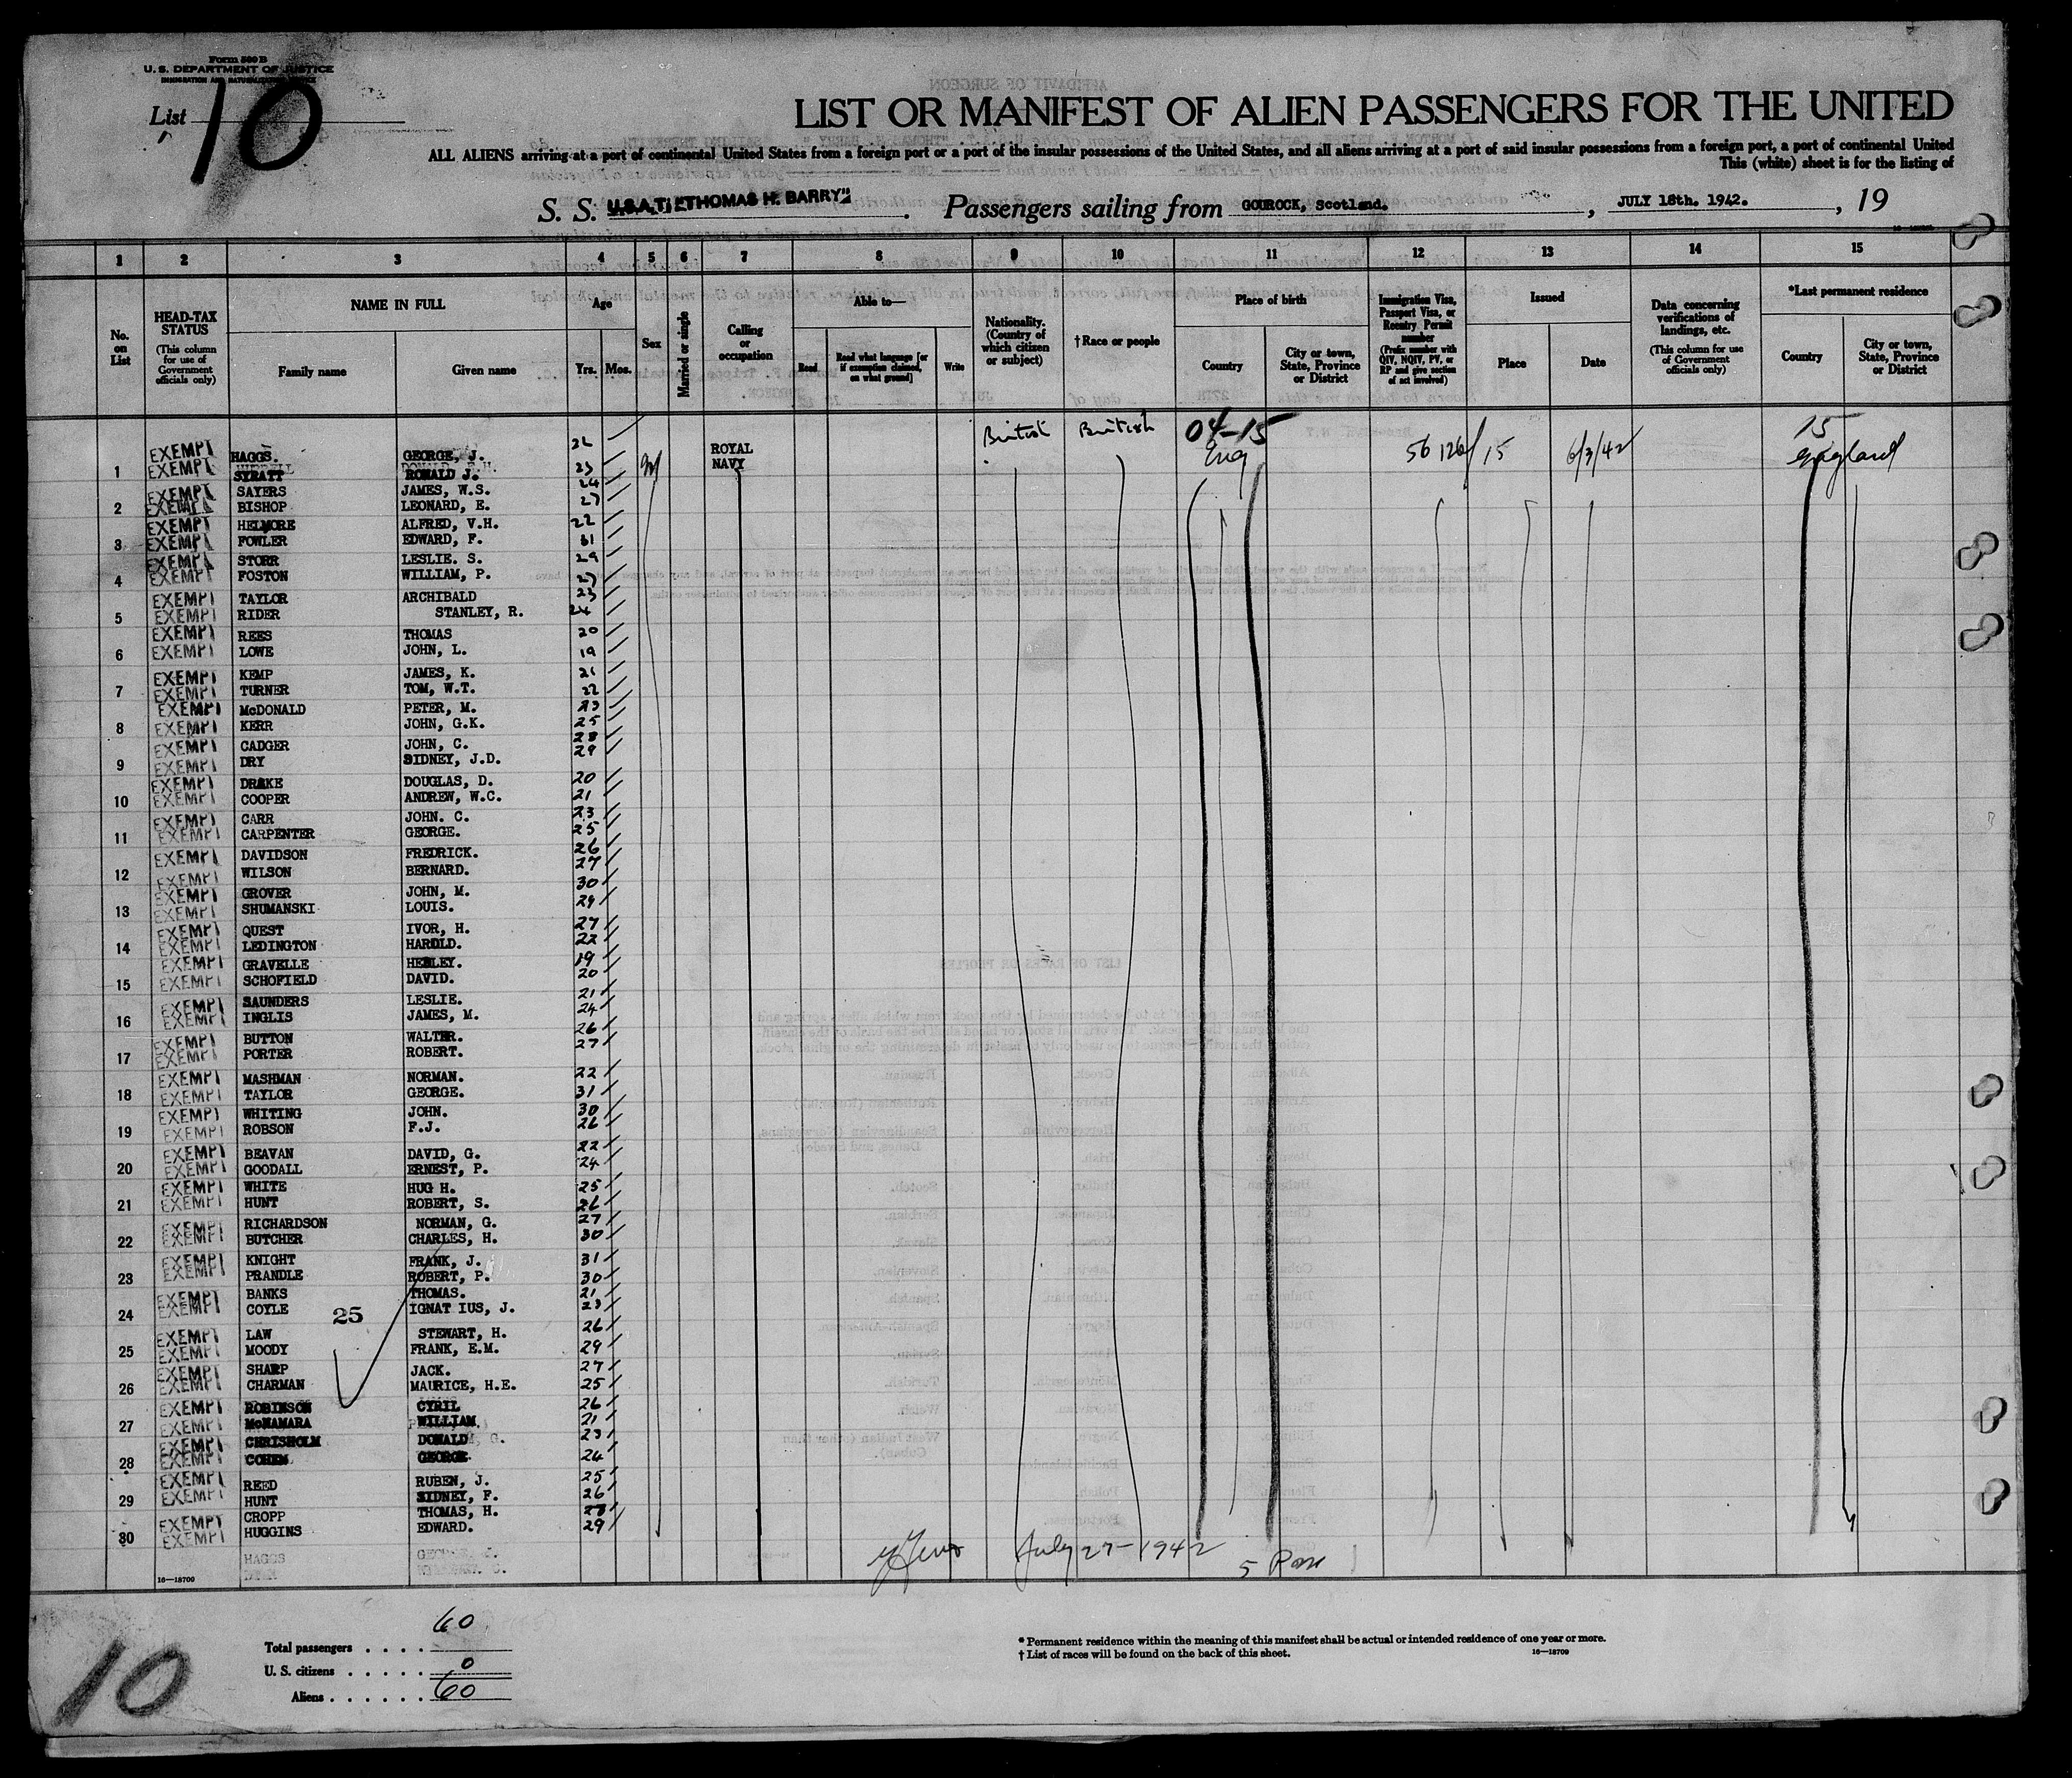 Form 500 B
U. S. DEPARTMENT OF JUSTICE
IMMIGRATION AND NATURALIZATION SERVICE
List 10
LIST OR MANIFEST OF ALIEN PASSENGERS FOR THE UNITED
ALL ALIENS arriving at a port of continental United States from a foreign port or a port of the insular possessions of the United States, and all aliens arriving at a port of said insular possessions from a foreign port, a port of continental United
This (white) sheet is for the listing of
S. S. U.S.A.T. "THOMAS H. BARRY". Passengers sailing from GOUROCK, Scotland., JULY 18th. 1942., 19
1 2 3 4 5 6 7 8 9 10 11 12 13 14 15
No. on List
HEAD-TAX STATUS (This column for use of Government officials only)
NAME IN FULL
Family name
Given name
Age
Yrs. Mos.
Sex
Married or single
Calling or occupation
Able to—
Read
Read what language [or if exemption claimed, on what ground]
Write
Nationality. (Country of which citizen or subject)
†Race or people
Place of birth
Country
City or town, State, Province or District
Immigration Visa, Passport Visa, or Reentry Permit number (Prefix number with QIV, NQIV, PV, or RP and give section of act involved)
Issued
Place
Date
Data concerning verifications of landings, etc. (This column for use of Government officials only)
*Last permanent residence
Country
City or town, State, Province or District
British British 04-15 15
EXEMPT HAGGS. GEORGE, J. ROYAL NAVY Eng 56126/15 6/3/42 England
1 EXEMPT SYRATT RONALD J. 23 M
EXEMPT SAYERS JAMES, W.S. 24
2 EXEMPT BISHOP LEONARD, E. 27
EXEMPT HELMORE ALFRED, V.H. 22
3 EXEMPT FOWLER EDWARD, F. 31
EXEMPT STORR LESLIE. S. 29
4 EXEMPT FOSTON WILLIAM, P. 27
EXEMPT TAYLOR ARCHIBALD 23
5 EXEMPT RIDER STANLEY, R. 24
EXEMPT REES THOMAS 20
6 EXEMPT LOWE JOHN, L. 19
EXEMPT KEMP JAMES, K. 21
7 EXEMPT TURNER TOM, W.T. 22
EXEMPT McDONALD PETER, M. 23
8 EXEMPT KERR JOHN, G.K. 25
EXEMPT CADGER JOHN, C. 28
9 EXEMPT DRY SIDNEY, J.D. 29
EXEMPT DRAKE DOUGLAS, D. 20
10 EXEMPT COOPER ANDREW, W.C. 21
EXEMPT CARR JOHN. C. 23
11 EXEMPT CARPENTER GEORGE. 25
EXEMPT DAVIDSON FREDRICK. 26
12 EXEMPT WILSON BERNARD. 27
EXEMPT GROVER JOHN, M. 30
13 EXEMPT SHUMANSKI LOUIS. 29
EXEMPT QUEST IVOR, H. 27
14 EXEMPT LEDINGTON HAROLD. 22
EXEMPT GRAVELLE HEDLEY. 19
15 EXEMPT SCHOFIELD DAVID. 20
EXEMPT SAUNDERS LESLIE. 21
16 EXEMPT INGLIS JAMES, M. 24
EXEMPT BUTTON WALTER. 26
17 EXEMPT PORTER ROBERT. 27
EXEMPT MASHMAN NORMAN. 22
18 EXEMPT TAYLOR GEORGE. 31
EXEMPT WHITING JOHN. 30
19 EXEMPT ROBSON F.J. 26
EXEMPT BEAVAN DAVID, G. 22
20 EXEMPT GOODALL ERNEST, P. 24
EXEMPT WHITE HUG H. 25
21 EXEMPT HUNT ROBERT, S. 26
EXEMPT RICHARDSON NORMAN, G. 27
22 EXEMPT BUTCHER CHARLES, H. 30
EXEMPT KNIGHT FRANK, J. 31
23 EXEMPT PRANDLE ROBERT, P. 30
EXEMPT BANKS THOMAS. 21
24 EXEMPT COYLE 25 IGNAT IUS, J. 23
EXEMPT LAW STEWART, H. 26
25 EXEMPT MOODY FRANK, E.M. 29
EXEMPT SHARP JACK. 27
26 EXEMPT CHARMAN MAURICE, H.E. 25
EXEMPT ROBINSON CYRIL 26
27 EXEMPT McNAMARA WILLIAM. 21
EXEMPT CHRISHOLM DONALD 23
28 EXEMPT COHEN GEORGE 24
EXEMPT REED RUBEN, J. 25
29 EXEMPT HUNT SIDNEY, F. 26
CROPP THOMAS, H.
EXEMPT
30 EXEMPT HUGGINS EDWARD. 29
HAGGS GEORGE, J.
July 27-1942
16—18709
Total passengers . . . . 60
U. S. citizens . . . . . 0
Aliens . . . . . . 60
* Permanent residence within the meaning of this manifest shall be actual or intended residence of one year or more.
† List of races will be found on the back of this sheet.
16—18709
10